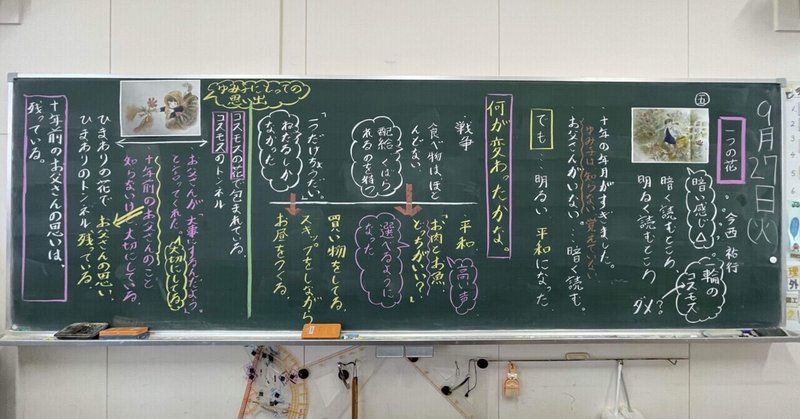 9月27日(火)
一つの花
今西 祐行
五
暗い感じ△
暗く読むところ
明るく読むところ
ダメ?
一輪のコスモス
十年の年月がすぎました。
ゆみ子は知らない 覚えていない
お父さんがいない。…暗く読む。
でも…明るい 平和になった。
何が変わったかな。
戦争
食べ物は、ほとんどない。
配給 くばられるのを待つ
「一つだけちょうだい。」
ねだるしかなかった
平和
高い声
「お肉とお魚、どっちがいい?」
選べるようになった
買い物をしてる。
スキップをしながら
お昼をつくる。
ゆみ子にとっての思い出
コスモスの花で包まれている。
コスモスのトンネル
お父さんが「大事にするんだよう。」
と言ってくれた。大切にしてる
十年前のお父さんのこと
知らないけど、大切にしている。
ひまわりの花で お父さんの思い
ひまわりのトンネル 残ている。
十年前のお父さんの思いは、
残っている。
理
外